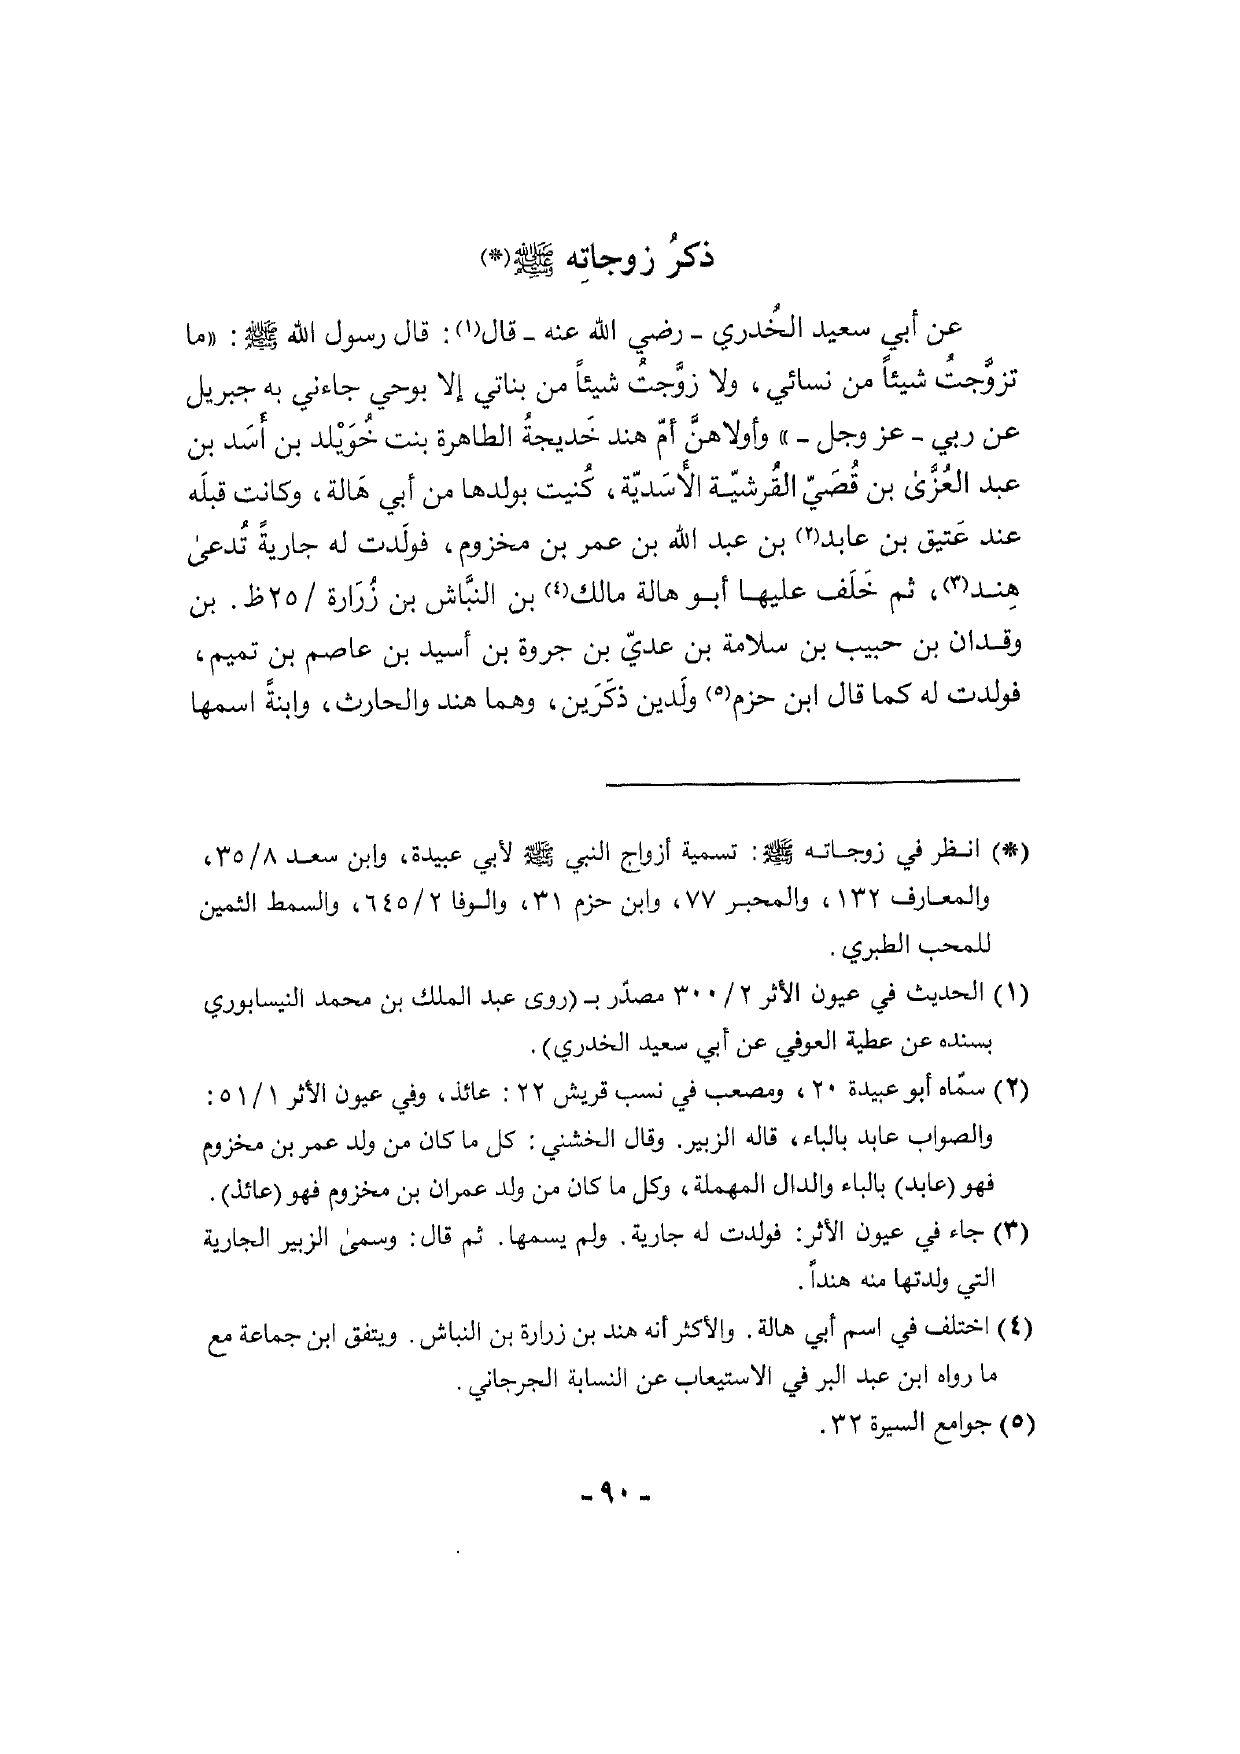 ذكرُ زوجاتِه ﷺ(*)
عن أبي سعيد الخُدري ـ رضي الله عنه ـ قال(١): قال رسول الله ﷺ: «ما
تزوَّجتُ شيئاً من نسائي، ولا زوَّجتُ شيئاً من بناتي إلا بوحي جاءني به جبريل
عن ربي ـ عز وجل ـ» وأولاهنَّ أمّ هند خَديجةُ الطاهرة بنت خُوَيْلد بن أَسَد بن
عبد العُزَّىٰ بن قُصَيّ القُرشيّة الأَسَديّة، كُنيت بولدها من أبي هَالة، وكانت قبلَه
عند عَتيق بن عابد(٢) بن عبد الله بن عمر بن مخزوم، فولَدت له جاريةً تُدعىٰ
هِند(٣)، ثم خَلَف عليها أبو هالة مالك(٤) بن النبَّاش بن زُرَارة /٢٥ظ. بن
وقدان بن حبيب بن سلامة بن عديّ بن جروة بن أسيد بن عاصم بن تميم،
فولدت له كما قال ابن حزم(٥) ولَدين ذكَرَين، وهما هند والحارث، وابنةً اسمها
(*) انظر في زوجاته ﷺ: تسمية أزواج النبي ﷺ لأبي عبيدة، وابن سعد ٣٥/٨،
والمعارف ١٣٢، والمحبر ٧٧، وابن حزم ٣١، والوفا ٦٤٥/٢، والسمط الثمين
للمحب الطبري.
(١) الحديث في عيون الأثر ٣٠٠/٢ مصدّر بـ (روى عبد الملك بن محمد النيسابوري
بسنده عن عطية العوفي عن أبي سعيد الخدري).
(٢) سمّاه أبو عبيدة ٢٠، ومصعب في نسب قريش ٢٢: عائذ، وفي عيون الأثر ٥١/١:
والصواب عابد بالباء، قاله الزبير. وقال الخشني: كل ما كان من ولد عمر بن مخزوم
فهو (عابد) بالباء والدال المهملة، وكل ما كان من ولد عمران بن مخزوم فهو (عائذ).
(٣) جاء في عيون الأثر: فولدت له جارية. ولم يسمها. ثم قال: وسمىٰ الزبير الجارية
التي ولدتها منه هنداً.
(٤) اختلف في اسم أبي هالة. والأكثر أنه هند بن زرارة بن النباش. ويتفق ابن جماعة مع
ما رواه ابن عبد البر في الاستيعاب عن النسابة الجرجاني.
(٥) جوامع السيرة ٣٢.
- ٩٠ -